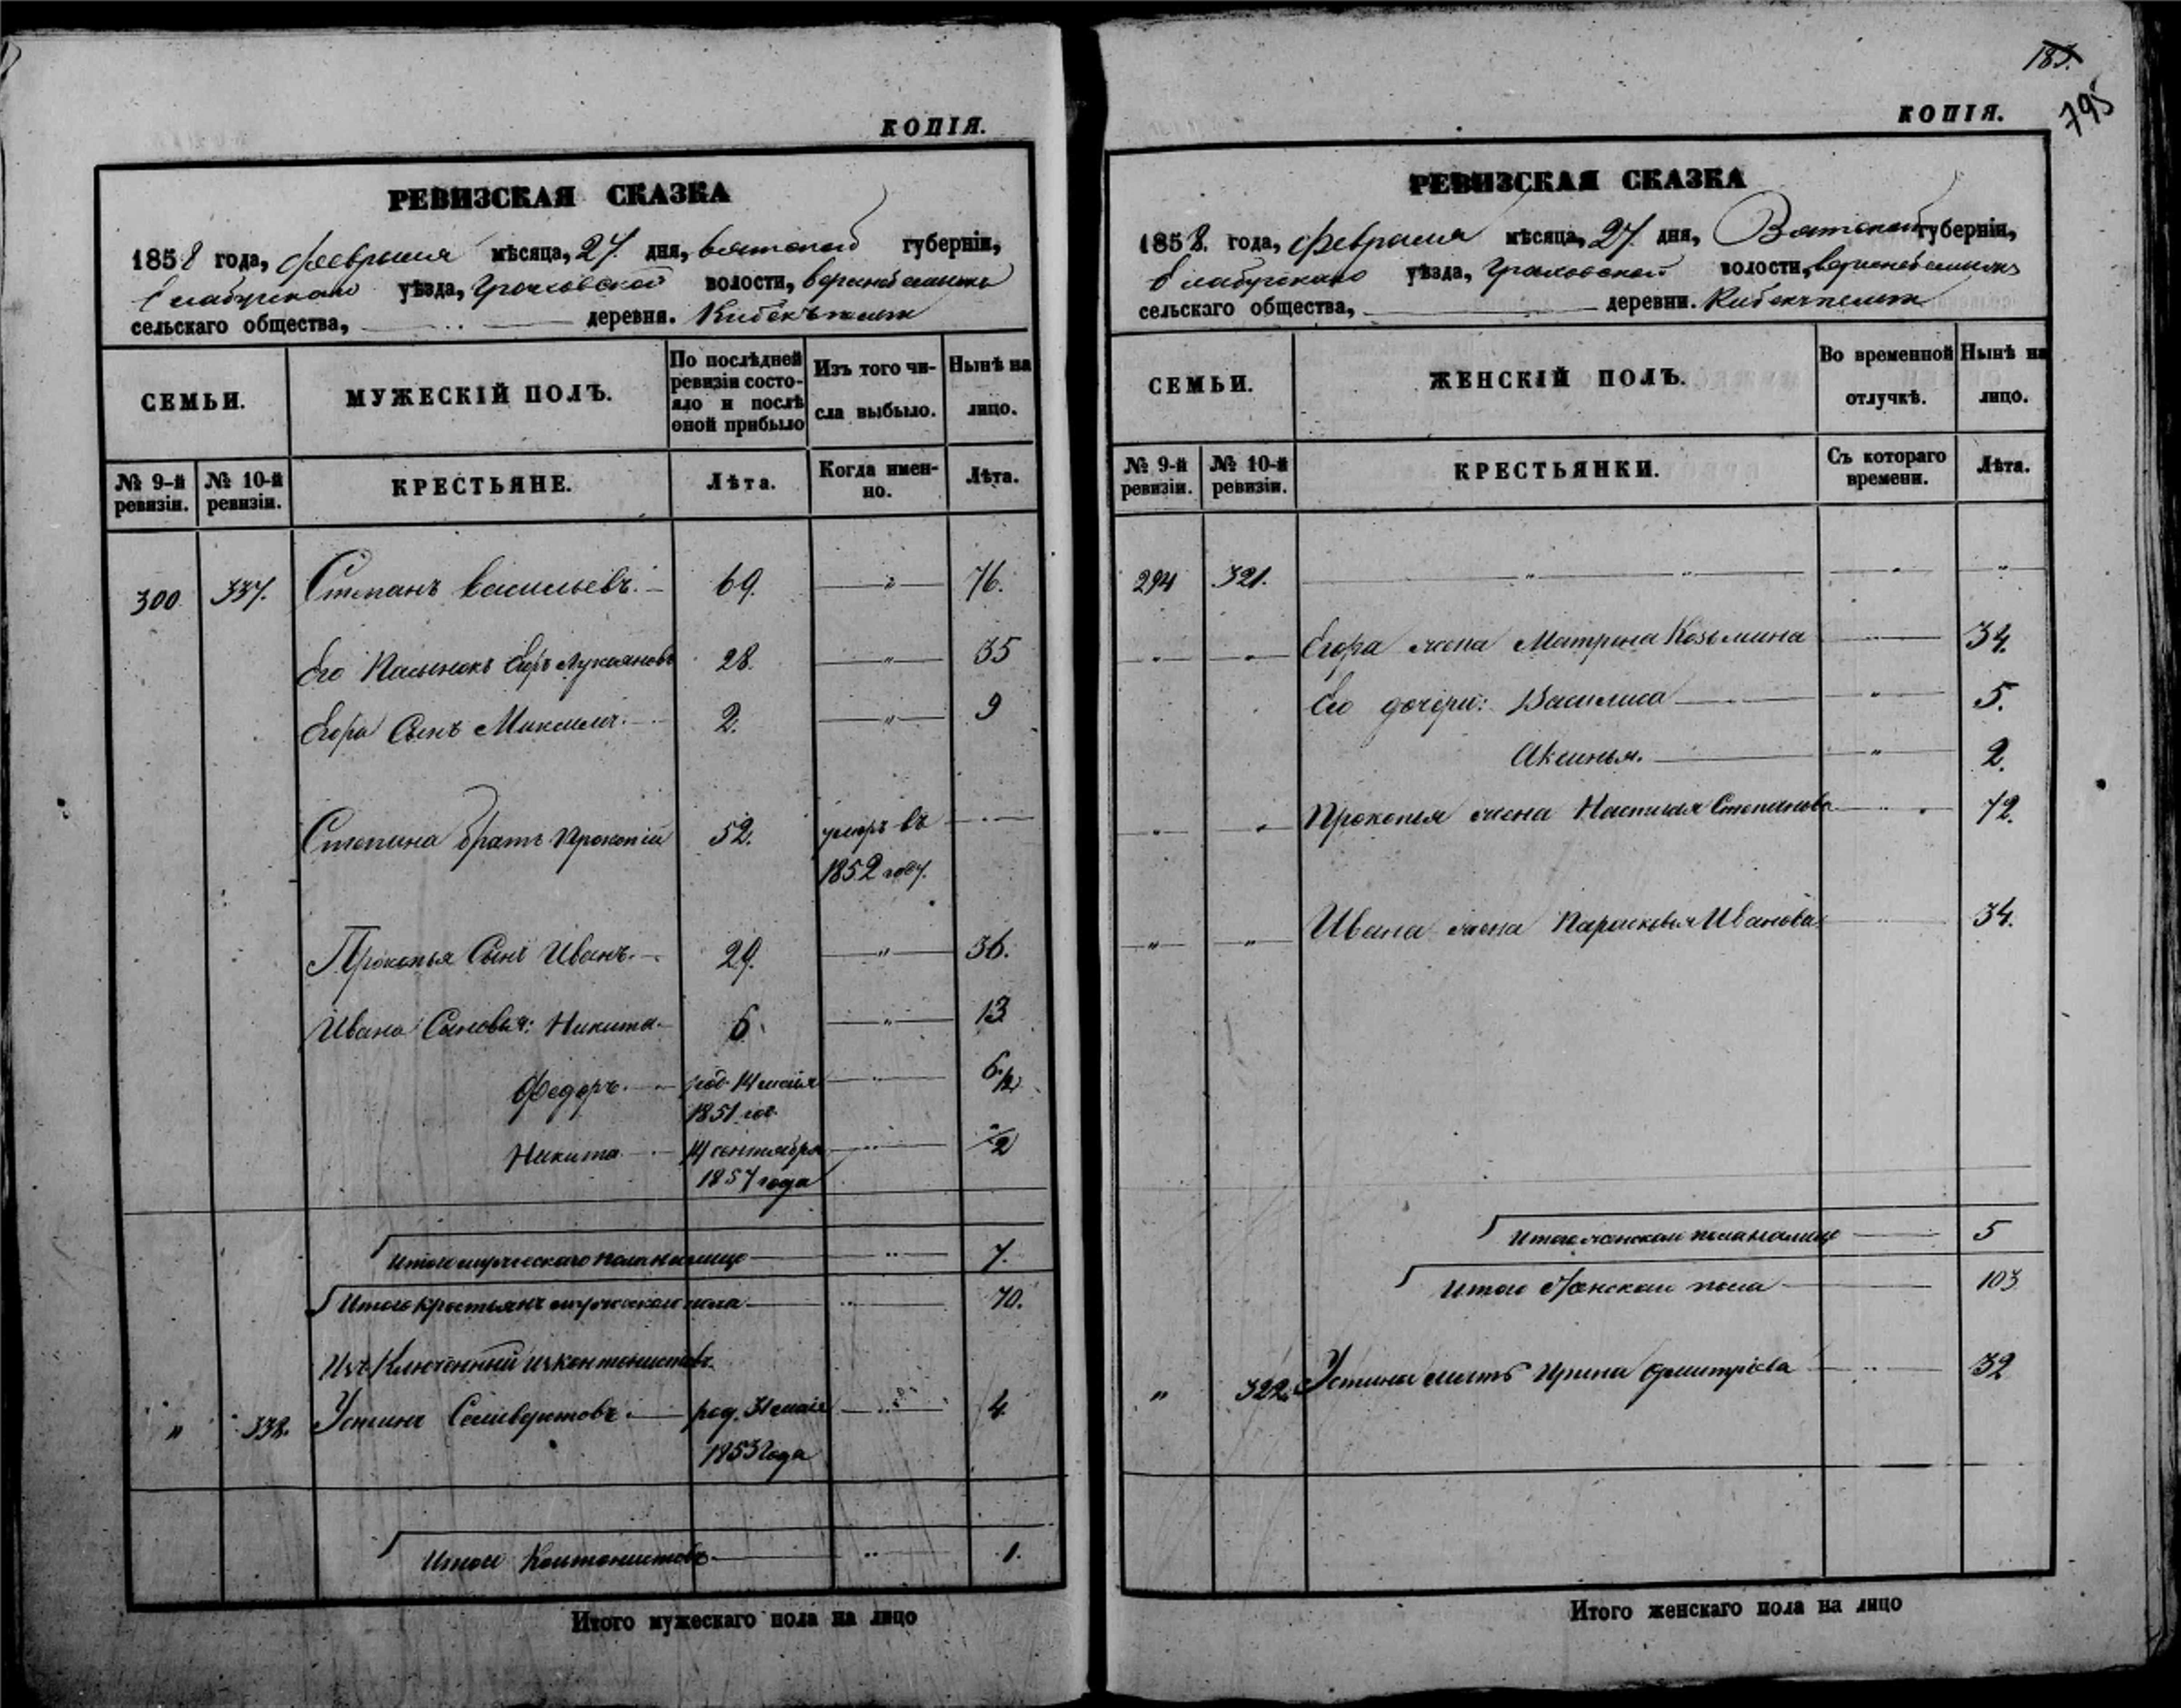 КОПІЯ.
РЕВИЗСКАЯ СКАЗКА
1858 года, февраля мѣсяца, 27. дня, вятской губерніи,
Елабужскаго уѣзда, Граховской волости,
сельскаго общества, деревня.
СЕМЬИ.
МУЖЕСКІЙ ПОЛЪ.
По послѣдней ревизіи состояло и послѣ оной прибыло
Изъ того числа выбыло.
Нынѣ на лицо.
№ 9-й ревизіи.
№ 10-й ревизіи.
КРЕСТЬЯНЕ.
Лѣта.
Когда именно.
Лѣта.
300 337. Степанъ Васильевъ. 69. 76.
Его Пасынокъ Егоръ Лукояновъ 28. 35
Егора Сынъ Максимъ. 2. 9
Степана братъ Прокопій 52. умеръ въ
1852 году.
Прокопья Сынъ Иванъ. 29. 36.
Ивана Сыновья: Никита 6. 13
Федоръ. род. 14 маія 6 1/2
1851 год.
Никита 14 сентября 1/2
1857 года
Итого мужескаго пола на лицо 7.
Итого крестьянъ мужескаго пола 70.
изъ кантонистовъ.
" 338. Устинъ Селиверстовъ. род. 31 маія 4.
1853 года
Итого Кантонистовъ 1.
Итого мужескаго пола на лицо
185.
795
КОПІЯ.
РЕВИЗСКАЯ СКАЗКА
1858. года, февраля мѣсяца, 27. дня, Вятской губерніи,
Елабужскаго уѣзда, Граховской волости,
сельскаго общества, деревни.
СЕМЬИ.
ЖЕНСКІЙ ПОЛЪ.
Во временной отлучкѣ.
Нынѣ на лицо.
№ 9-й ревизіи.
№ 10-й ревизіи.
КРЕСТЬЯНКИ.
Съ котораго времени.
Лѣта.
294 321.
Егора жена Матрена Козьмина 34.
Его дочери: Василиса 5.
Аксинья. 2.
Прокопья жена Настасья Степанова 72.
Ивана жена Парасковья Иванова 34.
Итого женскаго пола на лицо 5
Итого Женскаго пола 103
" 322. Устина мать Ирина Дмитріева 32
Итого женскаго пола на лицо